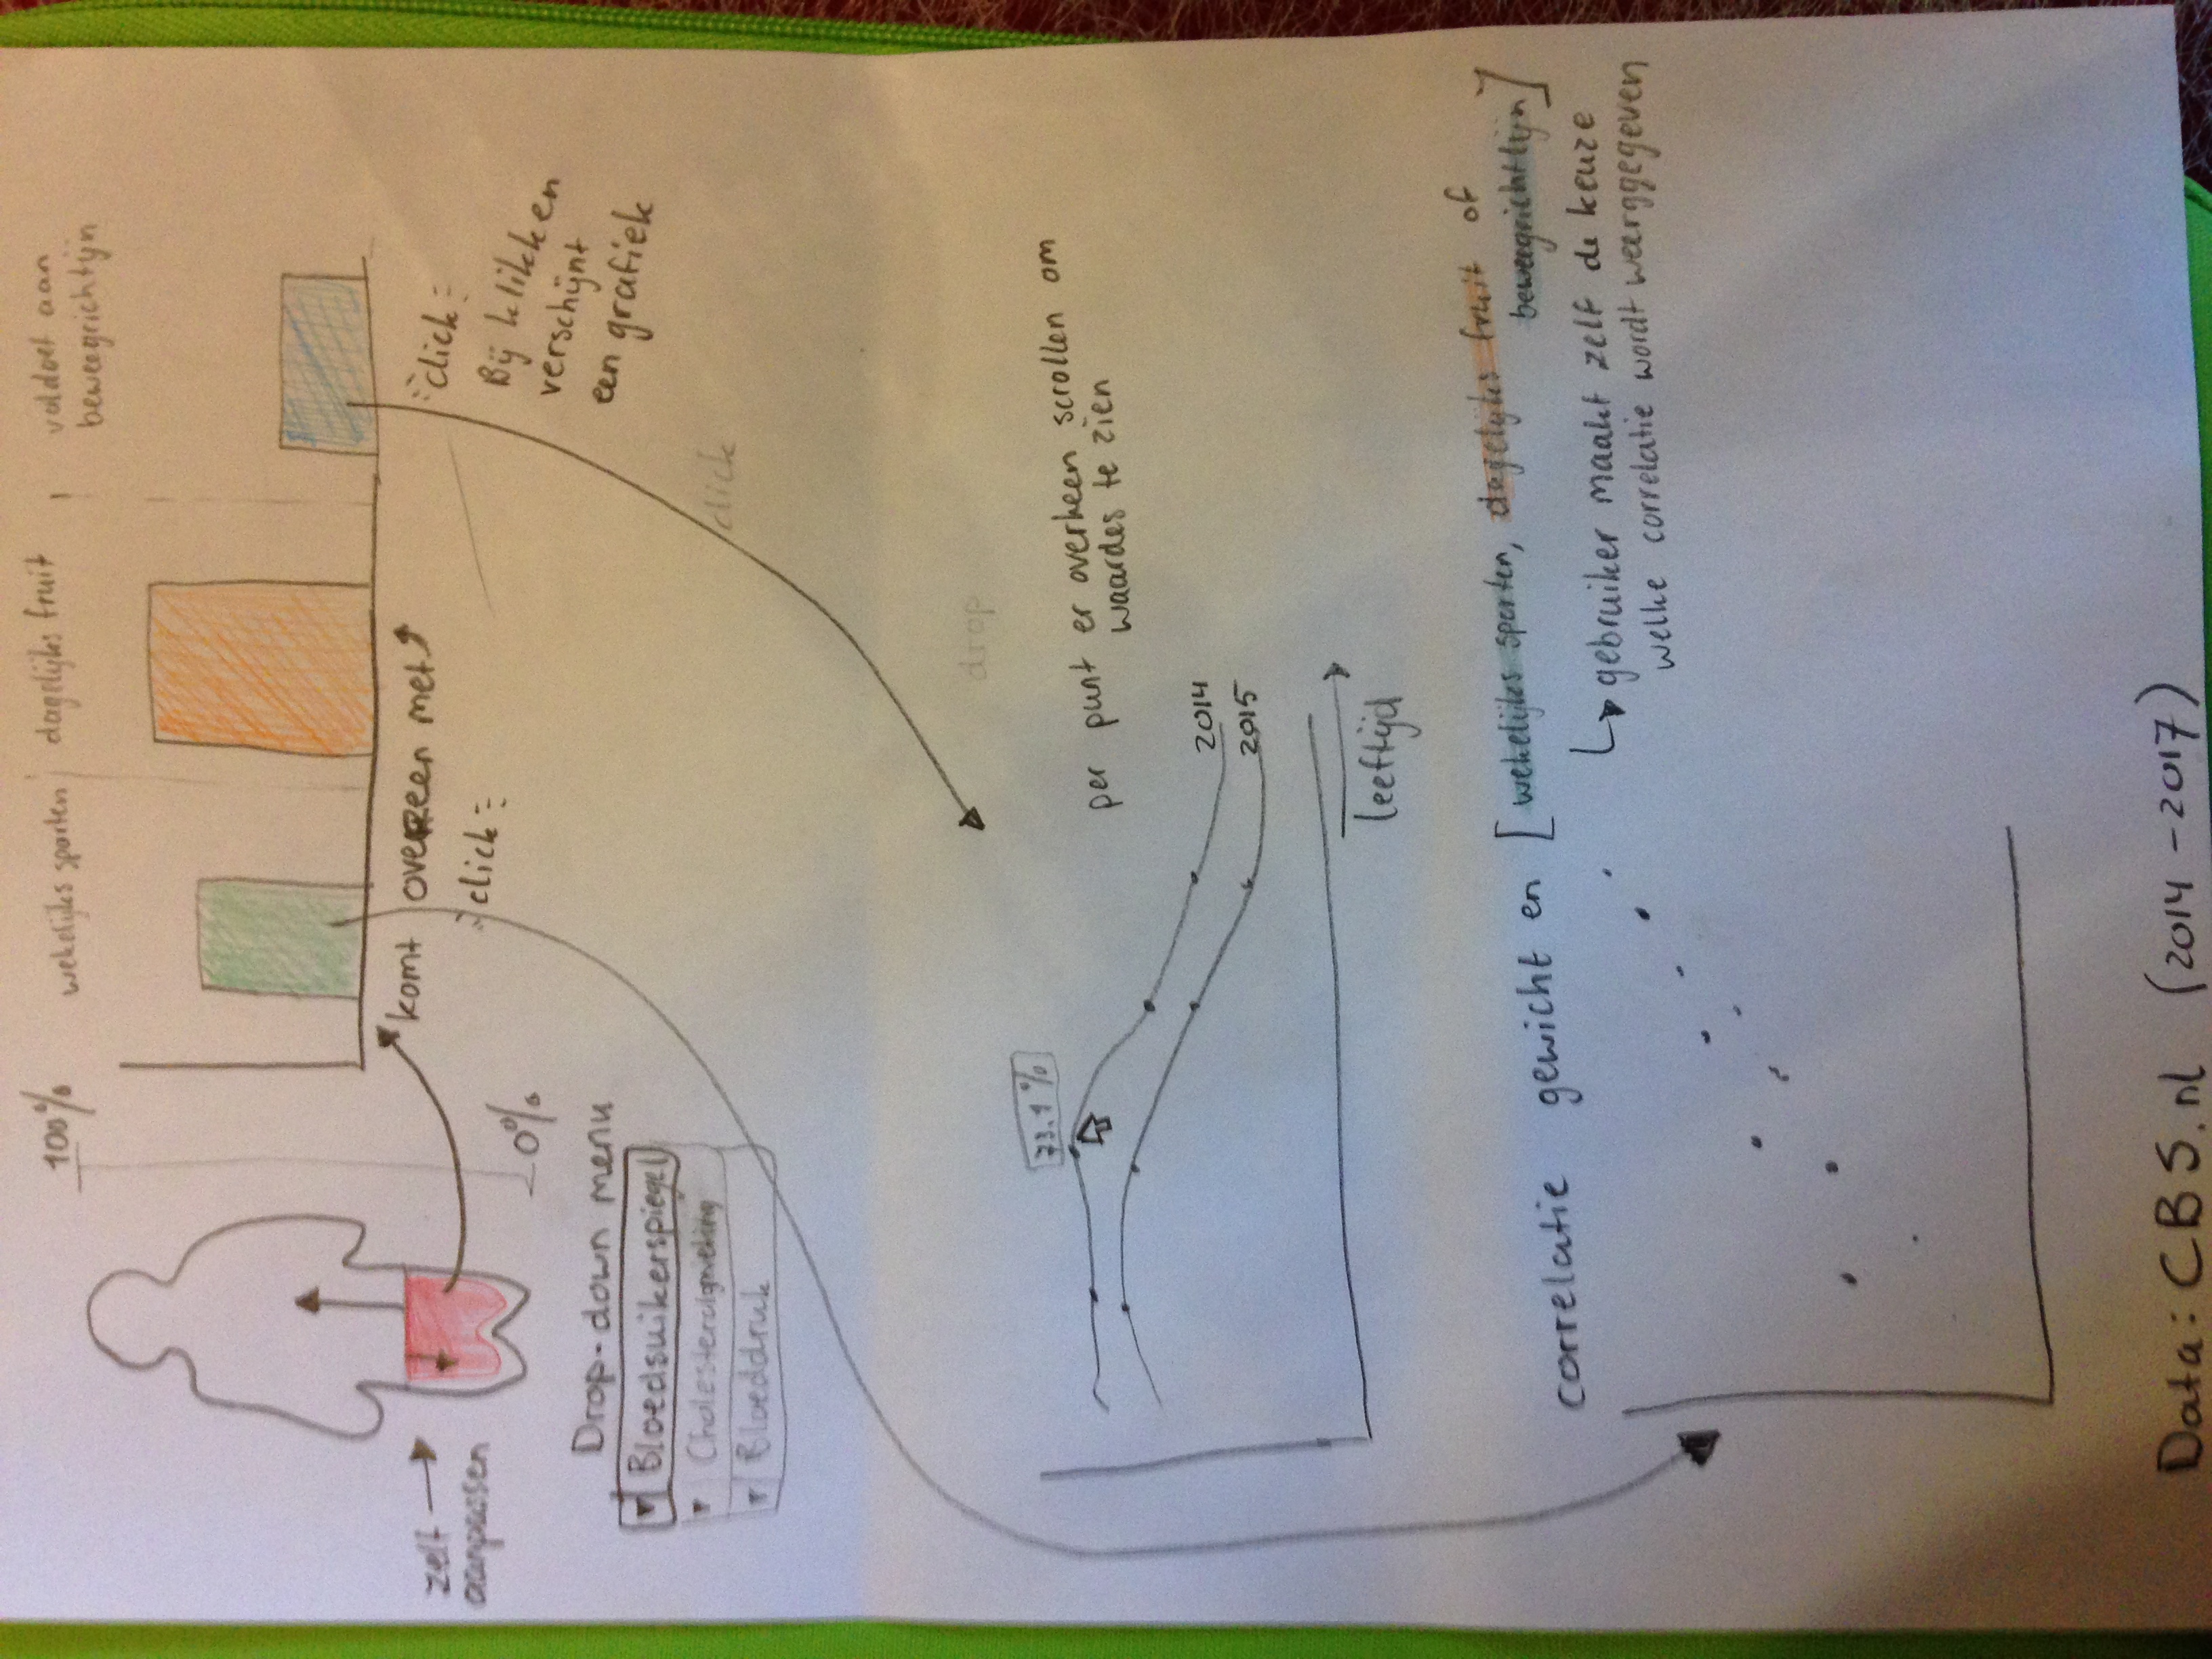 100%
wekelijks sporten
dagelijks fruit
voldoet aan
beweegrichtijn
zelf
aanpassen
komt overeen met
click
click
Bij klikken
verschijnt
een grafiek
0%
Drop-down menu
Bloedsuikerspiegel
Cholesterolgmeting
Bloeddruk
click
drop
73.1%
per punt er overheen scrollen om
waardes te zien
2014
2015
leeftijd
correlatie gewicht en [wekelijks sporten, dagelijks fruit of
beweegrichtlijn]
gebruiker maakt zelf de keuze
welke correlatie wordt weerggegeven
Data: CBS.nl (2014-2017)